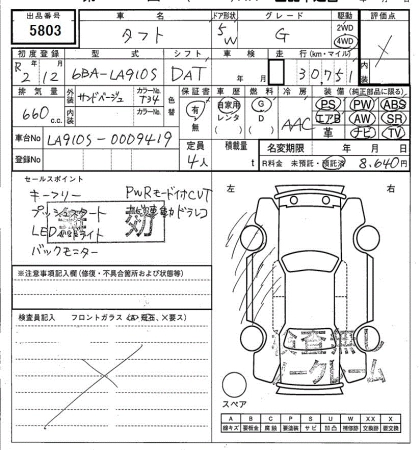 出品番号 車名 ドア形状 グレード 駆動 評価点
5803 タフト 5 W G 2WD 4WD
初度登録 型式 シフト 車検 走行(km・マイル)
R2 12 6BA-LA910S DAT 年 月 30,751
排気量 外装 カラーNo. 色替 保証書 車歴 燃料 冷房 装備(純正部品に限る)
660 c.c. サンドベージュ T34 有・無 自家用 レンタ G D AAC PS PW ABS
内装 カラーNo. エアB AW SR
革 ナビ TV
車台No LA910S-0009419 定員 4人 積載量 t 名変期限 年 月 日
登録No R料金 未預託・預託済 8,640円
セールスポイント
キーフリー PWRモード付CVT
プッシュスタート ドラレコ
LED ライト
バックモニター
左 右
※注意事項記入欄(修復・不具合箇所および状態等)
検査員記入 フロントガラス
スペア
A B C P S U W XX X
線キズ 要板金 腐蝕 要塗装 サビ 凹凸 補修跡 交換跡 要交換